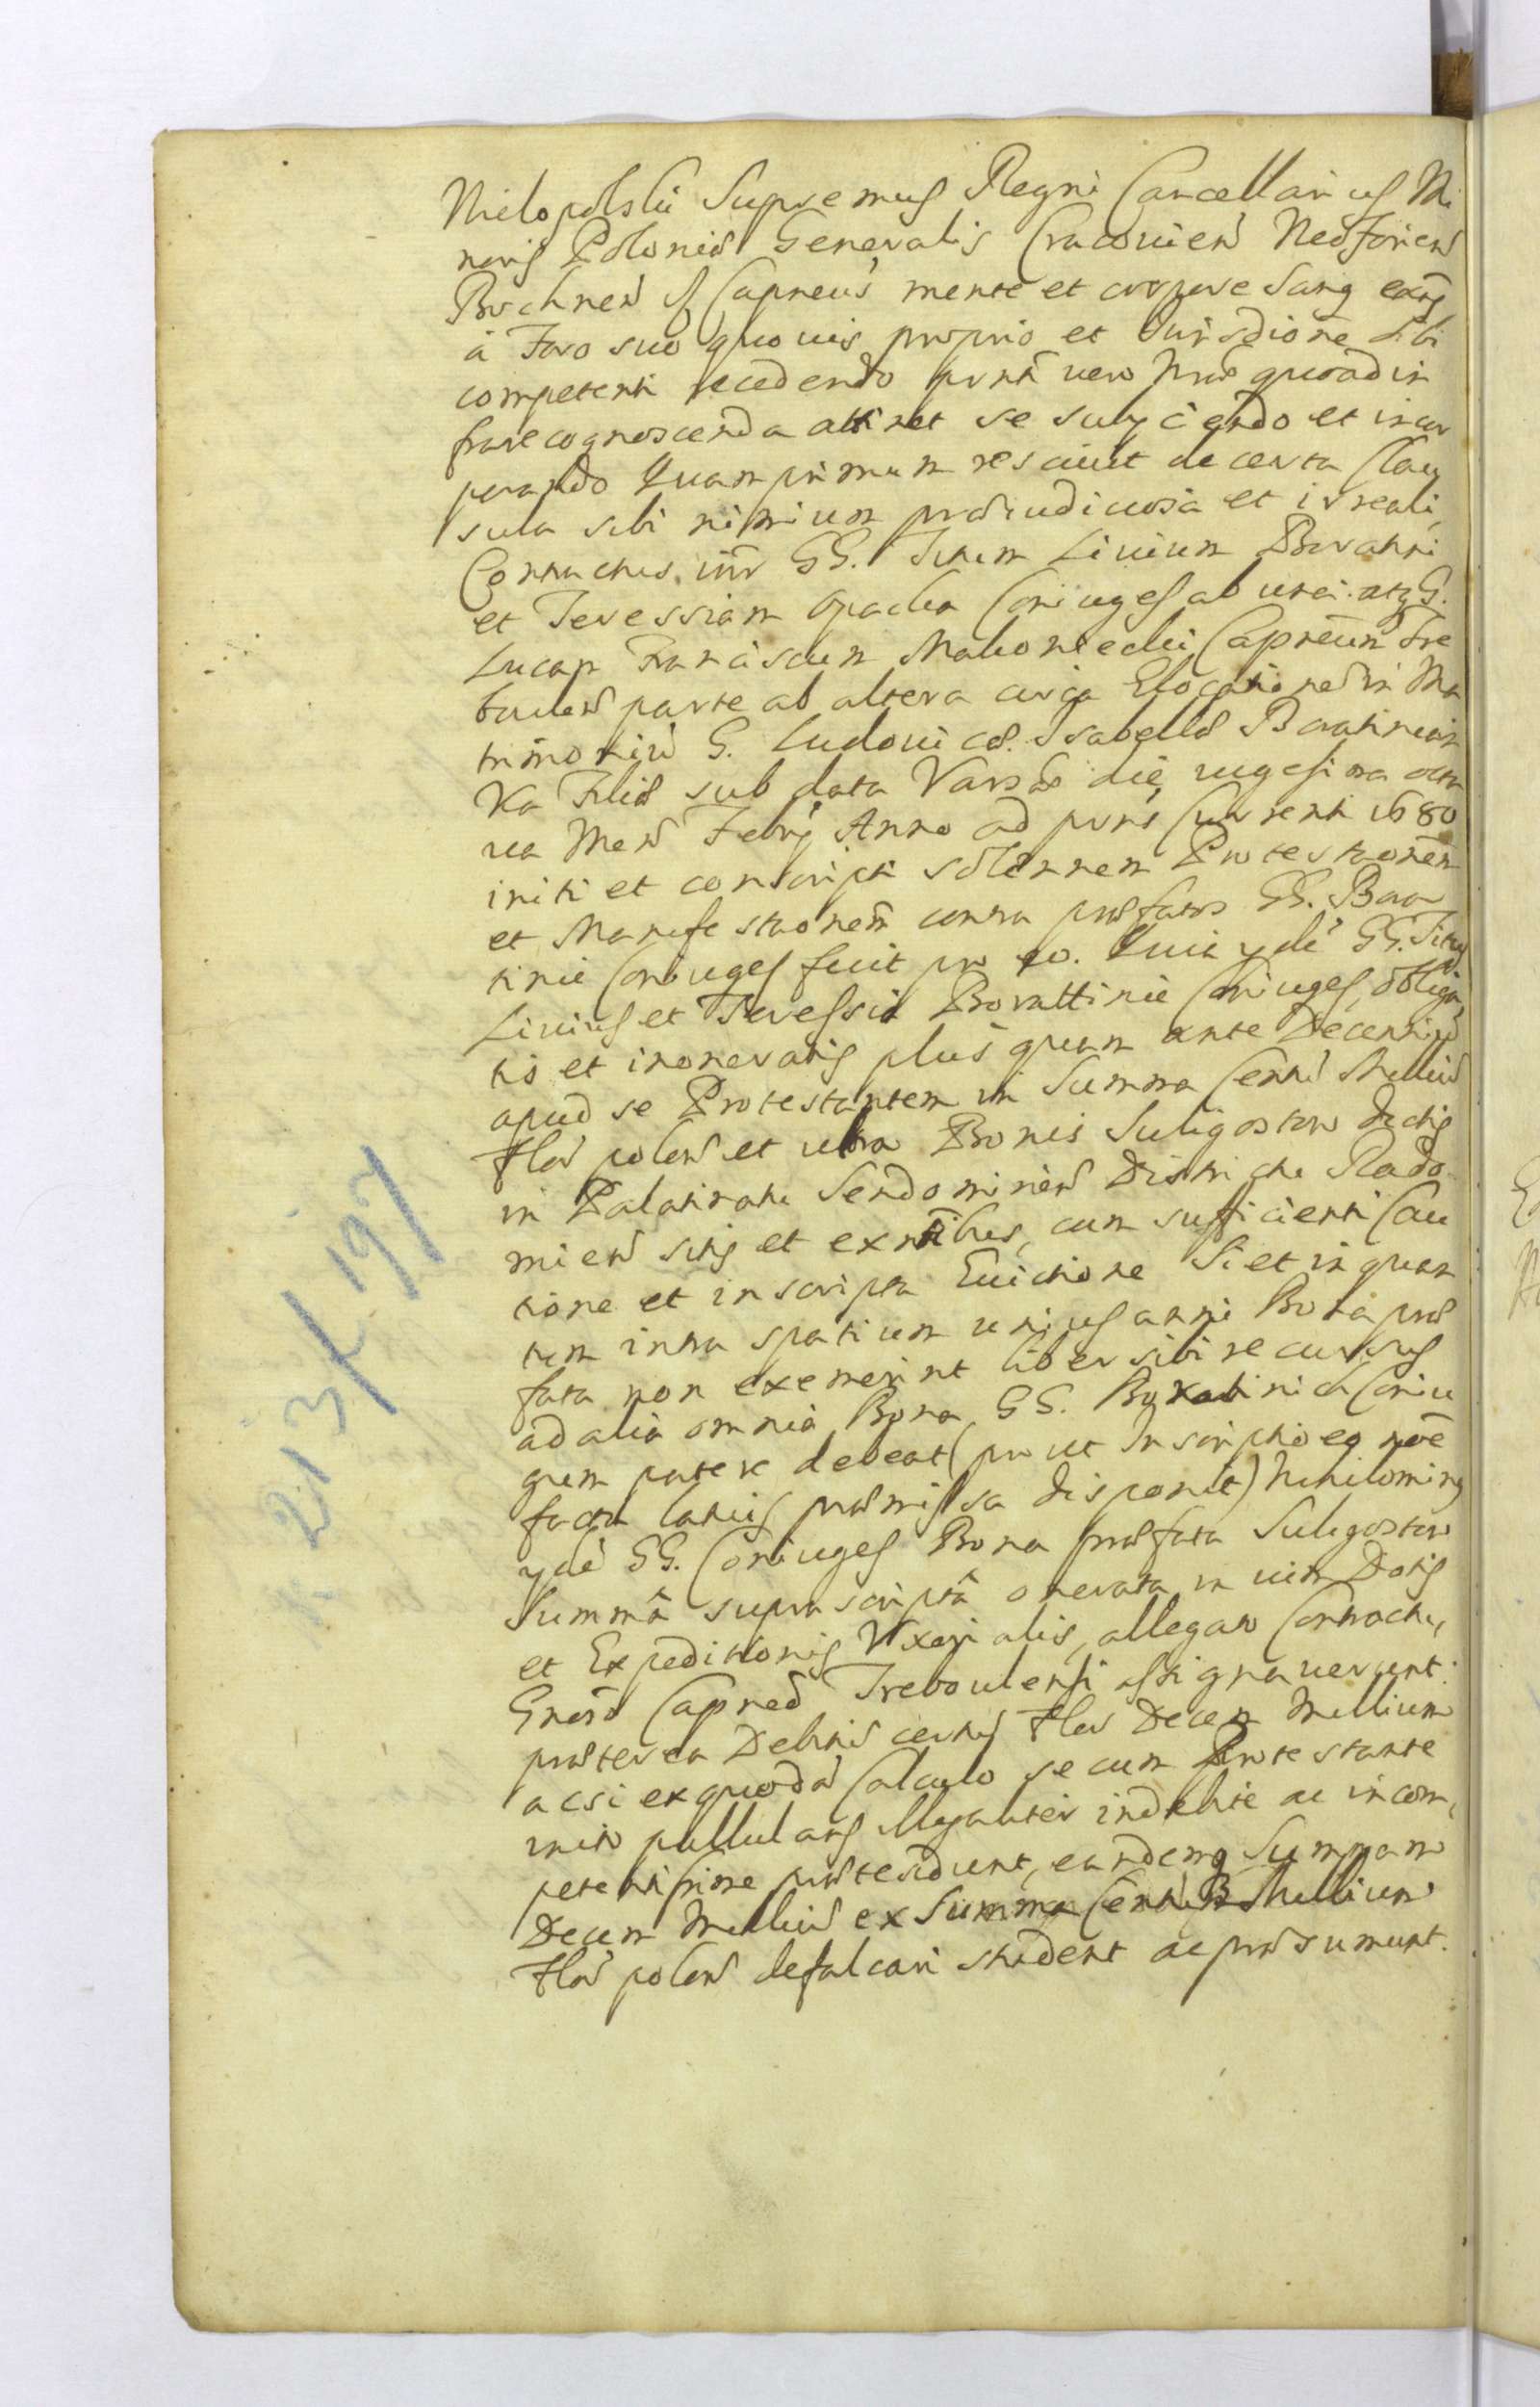 Wielopolski Supremus Regni Cancellarius Mi
noris Poloniæ Generalis Cracovien Neoforien
Bochnen Capneus mente et corpore sanus exns
à Foro suo quovis proprio et Jurisdione sibi
competenti recedendo pnti vero quoad in
fra recognoscenda attinet se subyciendo et incor
porando Quamprimum rescivit de certa Clau
sula sibi nimium præiudiciosa et irreali,
Contractus intr GG. Titum Livium Boratini
et Teressiam Opacka Coniuges ab una atq G.
Lucam Franciscum Malionecki Capneum Tre
boulen parte ab altera circa Elocationem in Ma
trimoniu G. Ludovicæ Isabellæ Boratinian
ka Filiæ sub data Varsæ die vigesima octa
va Men Febrij Anno ad pnns Currenti 1680
initi et conscripti solennem Protestaonem
et Manifestaonem contra præfatos GG. Bora
tinie Coniuges fecit pro eo. Quia ydē GG. Titus
Livius et Teressia Borattinie Coniuges, obliga
tis et inoneratis plus quam ante Decenniu
apud se Protestantem in Summa Centu Milliu
Flor polon et ultra Bonis Suligostow dictis
in Palatinatu Sendomirien Districtu Rado
mien sitis et exntibus, cum sufficienti Cau
tione et inscripta Evictione Si et in quan
tum intra spatium unius anni Bona præ
fata non exemerint liber sibi recursus
ad alia omnia Bona GG. Boratinich Coniu
gum patere debeat (prout Inscriptio eo noe
facta latius præmissa disponit) Nihilominus
ydē GG. Coniuges Bona præfata Suligostow
Summâ suprascriptâ onerata in vim Dotis
et Expeditionis Uxorialis, allegato Contractu,
Gnoso Capneo Treboulensi assignaverunt:
præterea Debitis certis Flor Decem Millium
acsi ex quodā Calculo secum Protestante
inito pullulans illegaliter indebite ac incom,
petentissime prætendunt, eandemq Summam
Decem Milliu ex Summa Centu Millium
Flor polon defalcari student ac præsumunt.
K 213/197